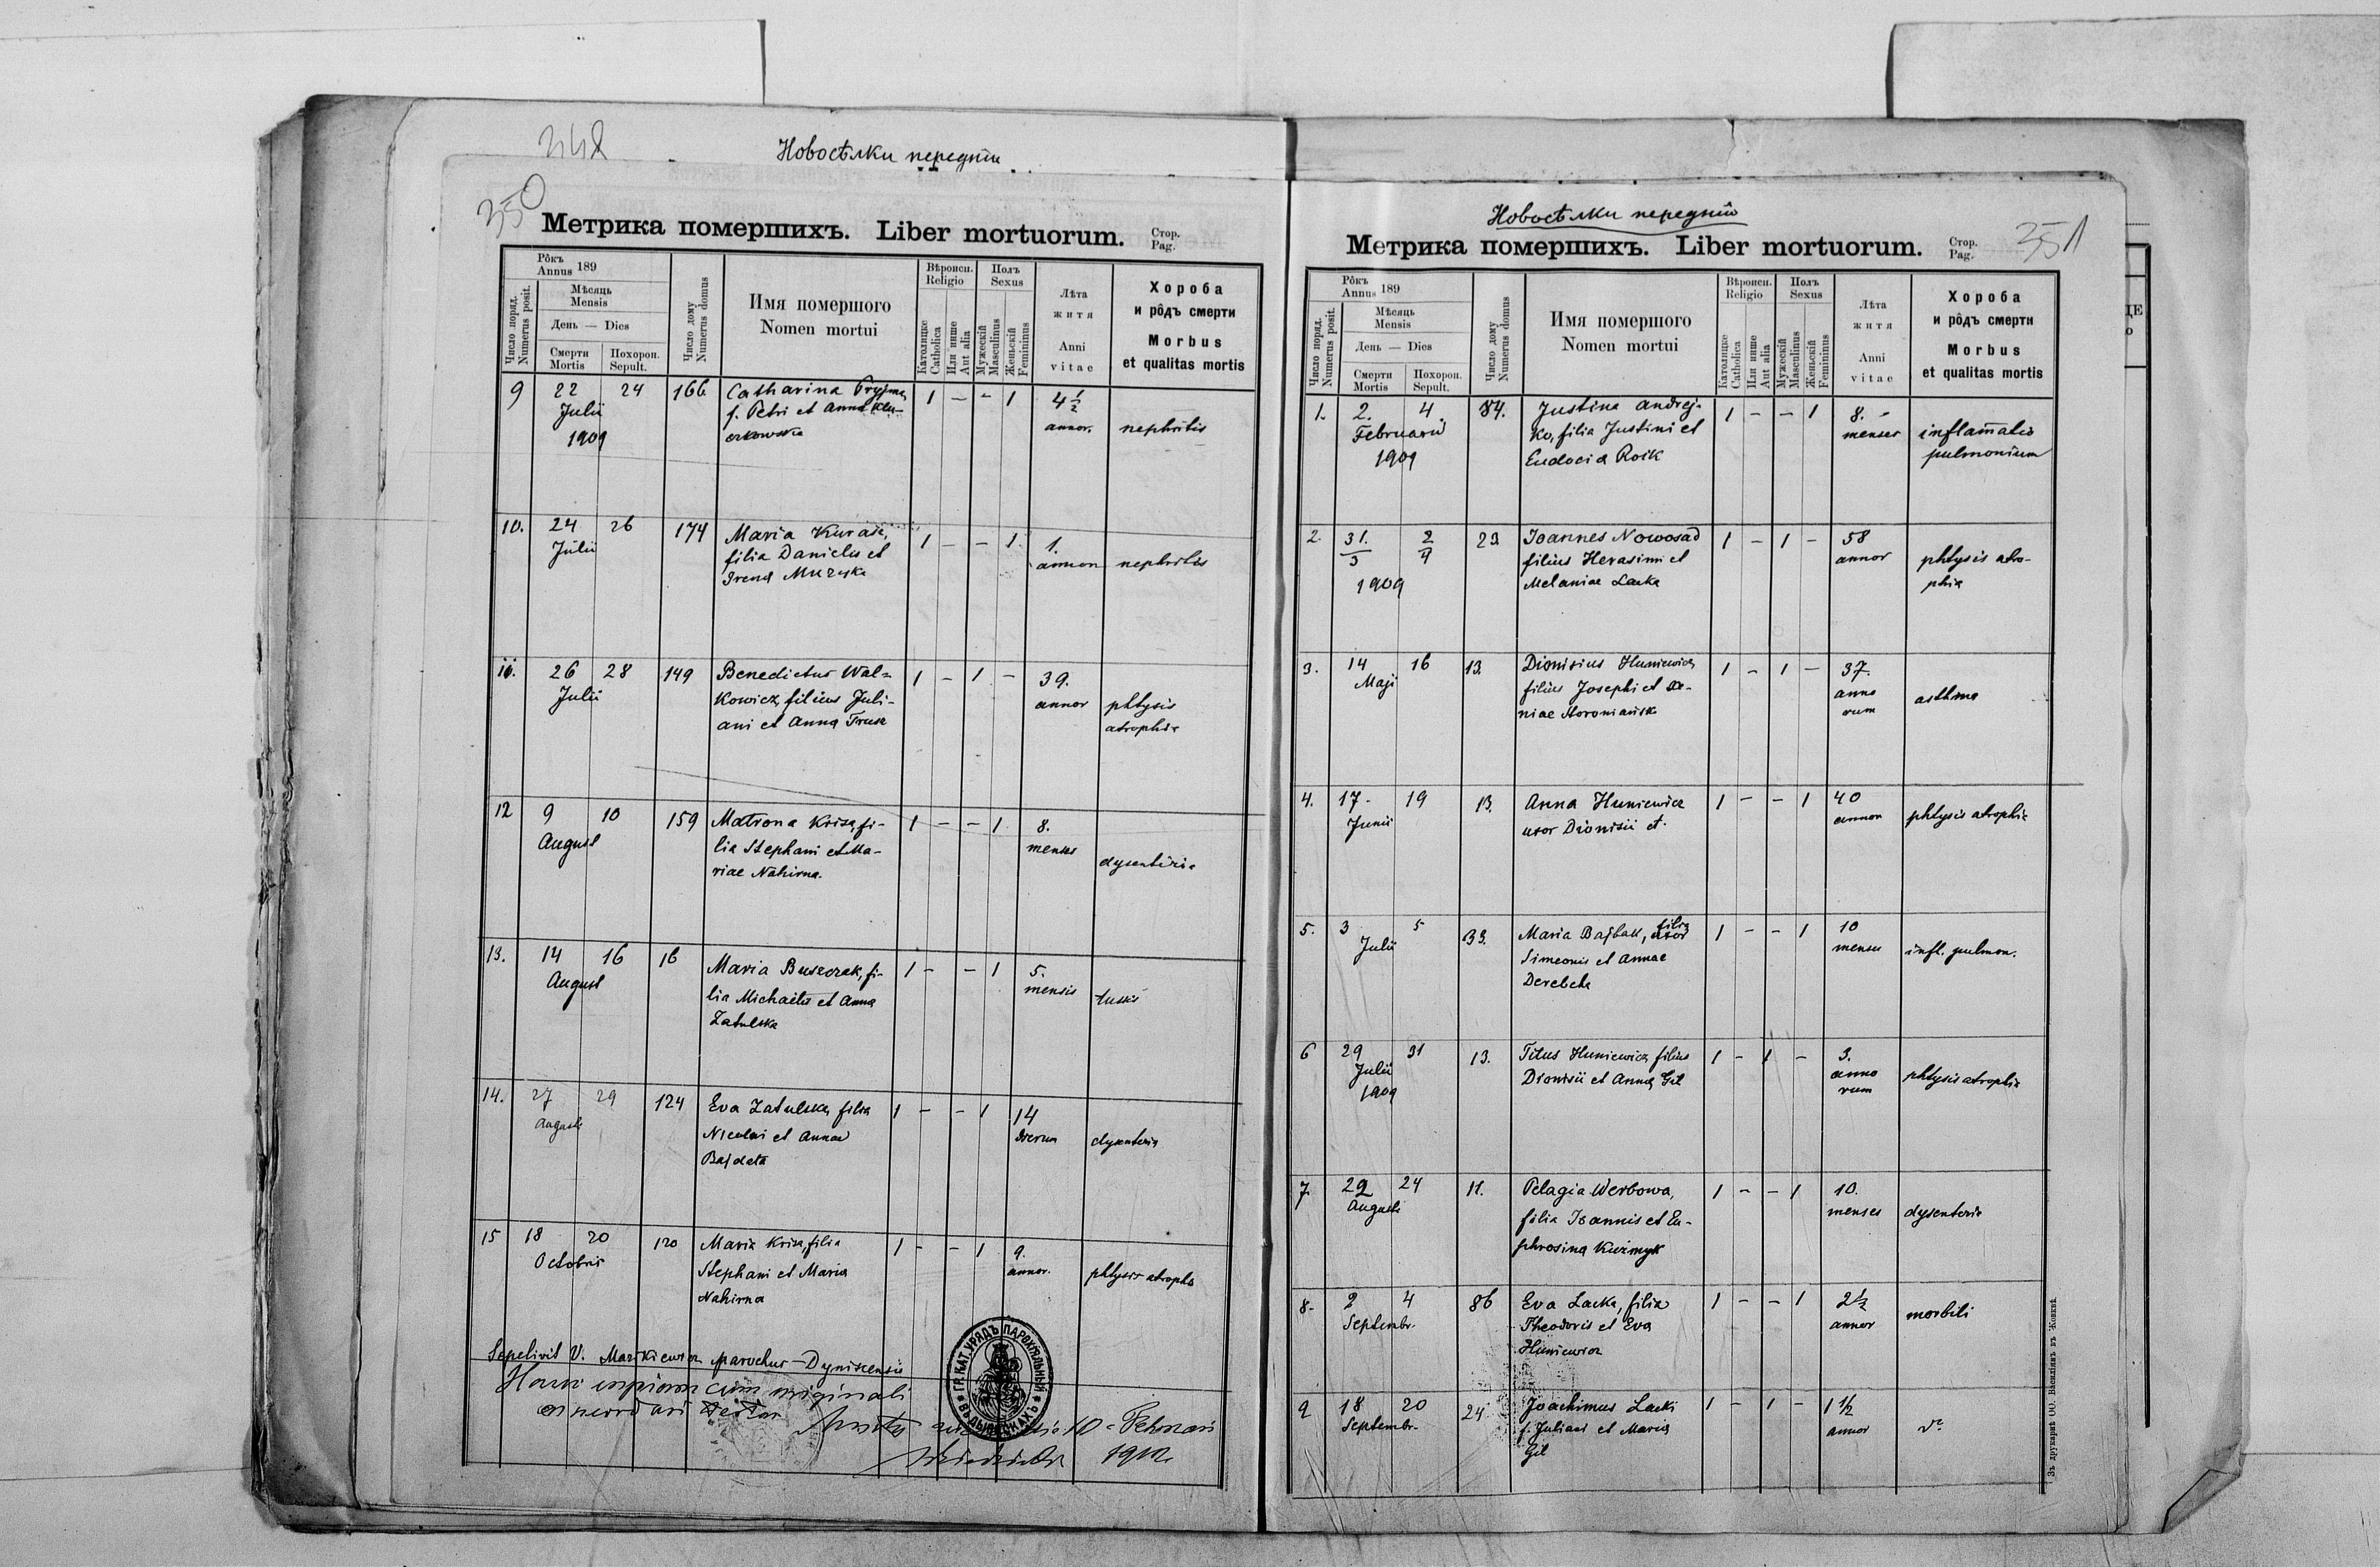 348
Новосѣлки передніи
350
Метрика помершихъ. Liber mortuorum. Стор. Pag.
Число поряд. Numerus posit.
Рôкъ Annus 189
Мѣсяць Mensis
День — Dies
Смерти Mortis
Похорон. Sepult.
Число дому Numerus domus
Имя помершого
Nomen mortui
Вѣроисп. Religio
Католицке Catholica
Или инше Aut alia
Полъ Sexus
Мужескій Masculinus
Женьскій Femininus
Лѣта житя
Anni vitae
Хороба
и рôдъ смерти
Morbus
et qualitas mortis
9 22 24 166 Catharina Pryjma, 1 – – 1 4 1/2
Julii f. Petri et Anna annor. nephritis
1909
10. 24 26 174 Maria Kurasz, 1 – – 1. 1.
Julii filia Danielis et annor nephritis
Irena
11. 26 28 149 Benedictus Wal- 1 – 1 – 39.
Julii kowicz, filius Juli- annor phtysis
ani et Anna Trusz atrophia
12 9 10 159 Matrona Krisa, fi- 1 – – 1. 8.
August lia Stephani et Ma- menses
riae Nahirna. dysenteria
13. 14 16 16 Maria Buszczak, fi- 1 – – 1 5.
August lia Michaelis et Anna mensis tussis
Zatulska
14. 27 29 124 Eva Zatulska, filia 1 – – 1 14
Augusti Nicolai et Annae dierum dysenteria
Bajdata
15 18 20 120 Maria Krisa, filia 1 – – 1 9.
Octobris Stephani et Maria annor. phtysis atrophia
Nahirna
Sepelivit V. Markiewicz parochus Dyniscensis
Hanc copiam cum originali
concordari testor
10 Februari
1910
ГР. КАТ. УРЯДЪ ПАРОХІЯЛЬНЫЙ
Новосѣлки передніи
351
Метрика помершихъ. Liber mortuorum. Стор. Pag.
Число поряд. Numerus posit.
Рôкъ Annus 189
Мѣсяць Mensis
День — Dies
Смерти Mortis
Похорон. Sepult.
Число дому Numerus domus
Имя помершого
Nomen mortui
Вѣроисп. Religio
Католицке Catholica
Или инше Aut alia
Полъ Sexus
Мужескій Masculinus
Женьскій Femininus
Лѣта житя
Anni vitae
Хороба
и рôдъ смерти
Morbus
et qualitas mortis
1. 2. 4. 84. Justina Andrej- 1 – – 1 8. –
Februarii ko, filia Justini et menses inflamatio
1909 Eudocia Roik pulmonium
2. 31. 2 23. Joannes Nowosad 1 – 1 – 58
3 4 filius Herasimi et annor phtysis atro-
1909 Melaniae Lacka phia
3. 14 16 13. Dionisius Huniewicz 1 – 1 – 37.
Maji filius Josephi et Xe- anno asthma
niae rum
4. 17. 19 13. Anna Huniewicz 1 – – 1 40
Junii uxor Dionisii et. annor phtysis atrophia
5. 3 5 33. Maria Bajbak, filia 1 – – 1 10
Julii Simeonis et Annae menses infl. pulmon.
Derebcha
6 29 31 13. Titus Huniewicz, filius 1 – 1 – 3.
Julii Dionisii et Anna Gil anno phtysis atrophia
1909 rum
7. 22 24 11. Pelagia Werbowa, 1 – – 1 10.
Augusti filia Joannis et Eu- menses dysenteria
phrosina Kuźmyk
8. 2 4 86 Eva Lacka, filia 1 – – 1 2 1/2
Septembr. Theodoris et Eva annor morbili
Huniewicz
9 18 20 24 Joachimus Lacki 1 – 1 – 1 1/2
Septembr. f. Juliani et Maria annor
Gil
Зъ друкарнѣ ОО. Василіянъ въ Жовквѣ.